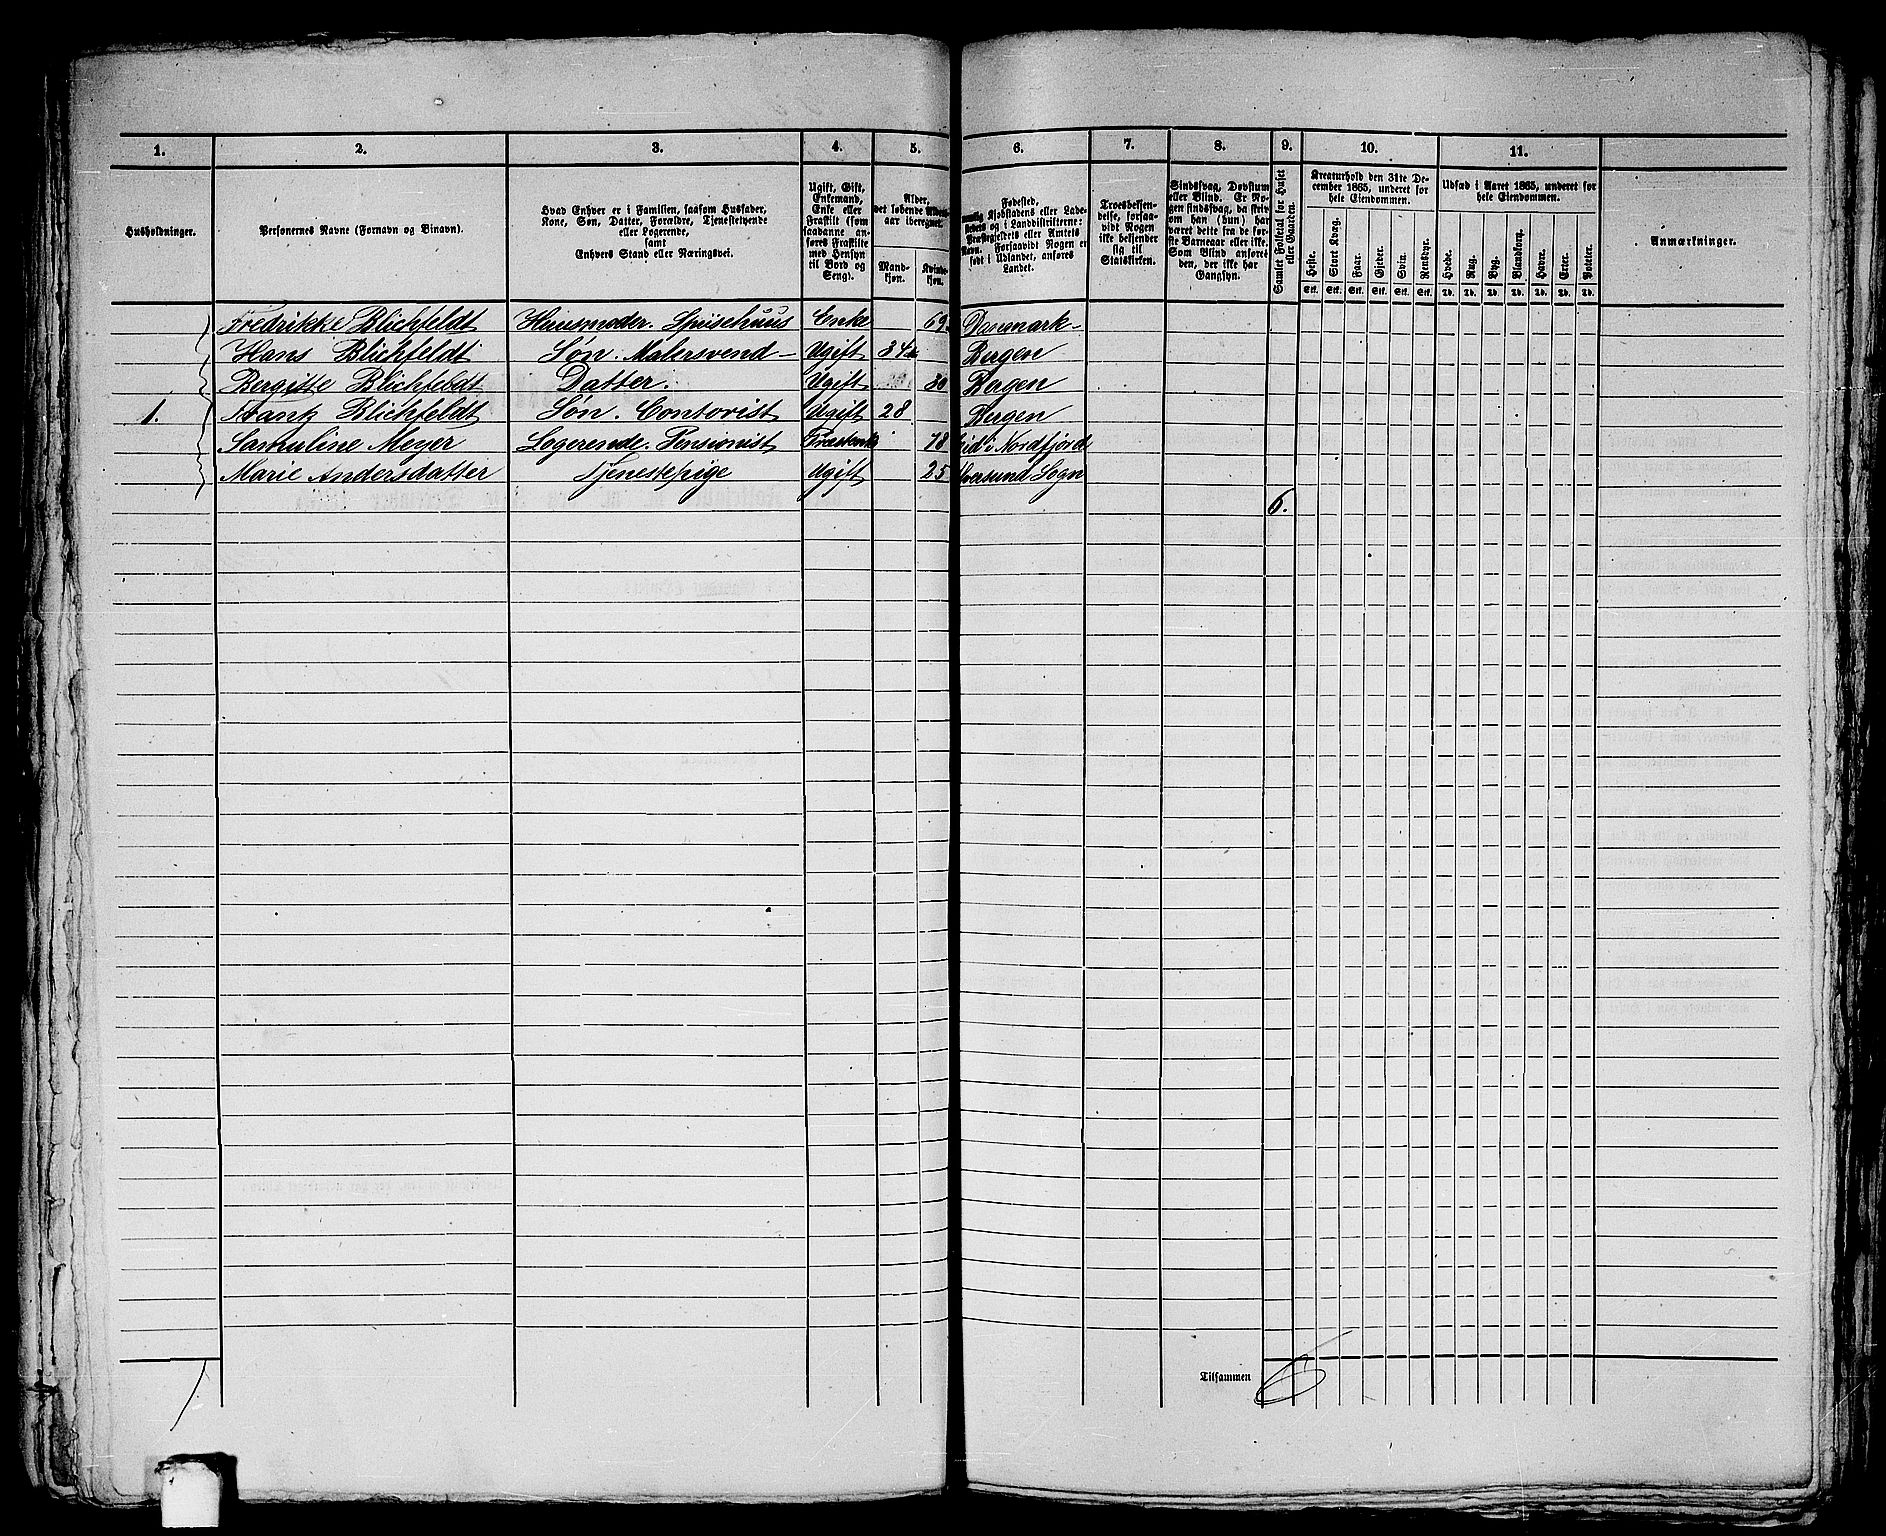 1. 2. 3. 4. 5. 6. 7. 8. 9. 10. 11.
Husholdninger.
Personernes Navne (Fornavn og Binavn).
Hvad Enhver er i Familien, saasom Husfader,
Kone, Søn, Datter, Forældre, Tjenestetyende
eller Logerende,
samt
Enhvers Stand eller Næringsvei.
Ugift, Gift,
Enkemand,
Enke eller
Fraskilt (som
saadanne an-
føres Fraskilte
med Hensyn
til Bord og
Seng).
Alder,
det løbende Alders-
aar iberegnet.
Mand-
kjøn.
Kvinde-
kjøn.
Fødested,
nemlig Kjøbstadens eller Lade-
stedets og i Landdistrikterne:
Præstegjeldets eller Amtets
Navn. Forsaavidt Nogen er
født i Udlandet, anføres
Landet.
Troesbekjen-
delse, forsaa-
vidt Nogen
ikke bekjender
sig til
Statskirken.
Sindssvag, Døvstum
eller Blind. Er No-
gen sindssvag, da skriv
om han (hun) har
været dette fra de før-
ste Barneaar eller ikke.
Som Blind anføres
den, der ikke har
Gangsyn.
Samlet Folketal for Huset
eller Gaarden.
Kreaturhold den 31te De-
cember 1865, underet for
hele Eiendommen.
Heste. Stort Kvæg. Faar. Gjeder. Svin. Rensdyr.
Stk. Stk. Stk. Stk. Stk. Stk.
Udsæd i Aaret 1865, underet for
hele Eiendommen.
Hvede. Rug. Byg. Blandkorn. Havre. Erter. Poteter.
Td. Td. Td. Td. Td. Td. Td.
Anmærkninger.
Fredrikke Blichfeldt Huusmoder. Spiisehuus Enke 69 Danmark
Hans Blichfeldt Søn. Malersvend Ugift 34 Bergen
Bergitte Blichfeldt Datter. Ugift 30 Bergen
1. Frank Blichfeldt Søn. Contorist Ugift 28 Bergen
Samuline Meyer Logerende. Pensionist 78 Eid i Nordfjord
Marie Andersdatter Tjenestepige Ugift 25 Sogn
6.
Tilsammen 6